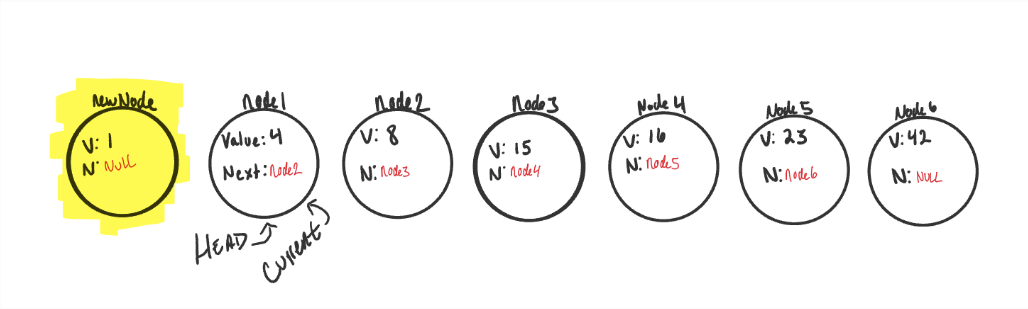 newNode
V: 1
N: Null
Node1
Value: 4
Next: Node2
Node2
V: 8
N: Node3
Node3
V: 15
N: Node4
Node4
V: 16
N: Node5
Node5
V: 23
N: Node6
Node6
V: 42
N: NULL
HEAD
Current